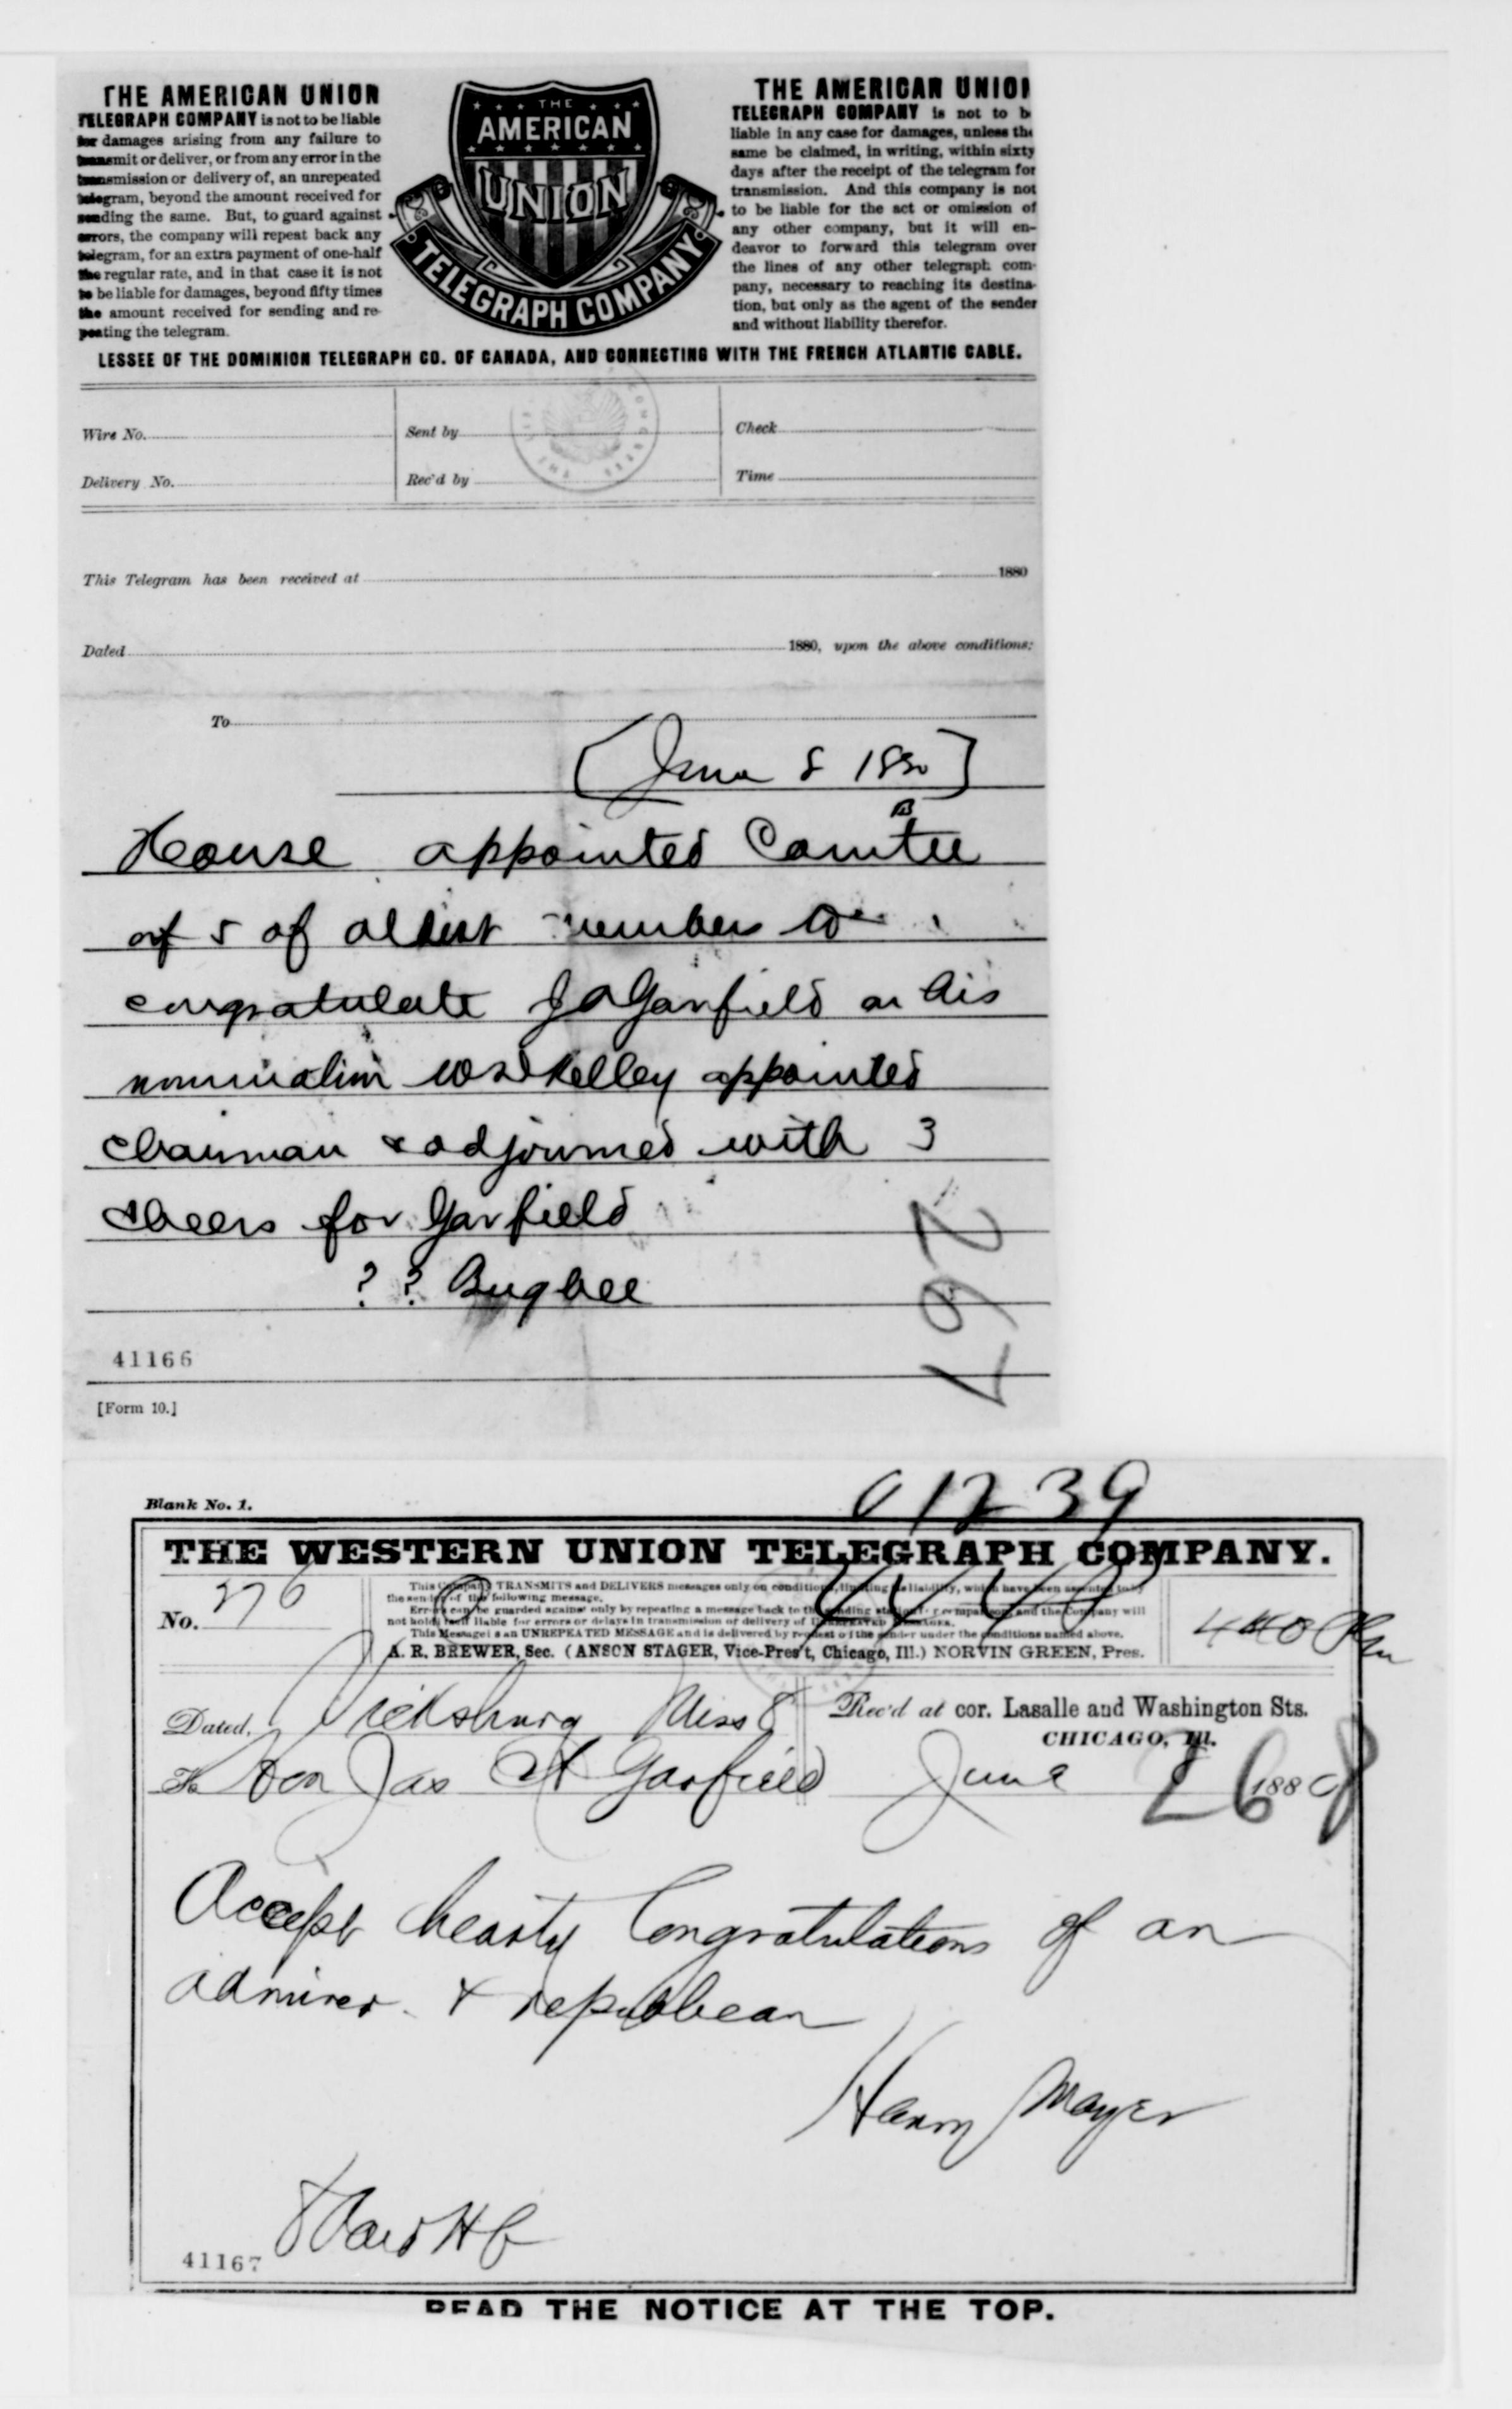 THE AMERICAN UNION
TELEGRAPH COMPANY is not to be liable
for damages arising from any failure to
transmit or deliver, or from any error in the
transmission or delivery of, an unrepeated
telegram, beyond the amount received for
sending the same. But, to guard against
errors, the company will repeat back any
telegram, for an extra payment of one-half
the regular rate, and in that case it is not
to be liable for damages, beyond fifty times
the amount received for sending and re-
peating the telegram.
THE
AMERICAN
UNION
TELEGRAPH COMPANY
THE AMERICAN UNION
TELEGRAPH COMPANY is not to b
liable in any case for damages, unless the
same be claimed, in writing, within sixty
days after the receipt of the telegram for
transmission. And this company is not
to be liable for the act or omission of
any other company, but it will en-
deavor to forward this telegram over
the lines of any other telegraph com-
pany, necessary to reaching its destina-
tion, but only as the agent of the sender
and without liability therefor.
LESSEE OF THE DOMINION TELEGRAPH CO. OF CANADA, AND CONNECTING WITH THE FRENCH ATLANTIC CABLE.
Wire No. Sent by Check
Delivery No. Rec'd by Time
This Telegram has been received at 1880
Dated 1880, upon the above conditions:
To
[June 8 1880]
House appointed Comtee
of 5 of oldest members to
congratulate J A Garfield on his
nomination Wm D Kelley appointed
chairman & adjourned with 3
cheers for Garfield
? ? Bugbee
267
41166
[Form 10.]
01239
Blank No. 1.
THE WESTERN UNION TELEGRAPH COMPANY.
No. 276
This Company TRANSMITS and DELIVERS messages only on conditions, limiting its liability, which have been assented to by
the sender of the following message.
Errors can be guarded against only by repeating a message back to the sending station for comparison, and the Company will
not hold itself liable for errors or delays in transmission or delivery of UNREPEATED MESSAGES.
This Message is an UNREPEATED MESSAGE and is delivered by request of the sender under the conditions named above.
A. R. BREWER, Sec. (ANSON STAGER, Vice-Pres't, Chicago, Ill.) NORVIN GREEN, Pres.
Dated, Vicksburg Miss 8
Rec'd at cor. Lasalle and Washington Sts.
CHICAGO, Ill.
To Hon Jas A Garfield June 8 1880
268
Accept hearty Congratulations of an
admirer & republican
Henry Mayer
41167
READ THE NOTICE AT THE TOP.